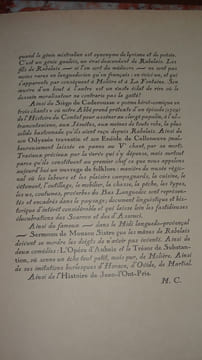 quand le génie mistralien est synonyme de lyrisme et de poésie.
C'est un génie gaulois, un vrai descendant de Rabelais. Les
fils de Rabelais — si l'on sort du médiocre — ne sont pas
moins rares en languedocien qu'en français; en voici un, et qui
s'apparente par conséquent à Molière et à La Fontaine. Son
œuvre d'un bout à l'autre est un vaste éclat de rire où le
dessein moralisateur ne contrarie pas la gaîté!
Ainsi du Siège de Caderousse « poème héroï-comique en
trois chants » où notre Abbé prend prétexte d'un épisode
de l'Histoire du Comtat pour amuser au clergé papalin, à ul-
tramontains, aux Jésuites, aux moines de toute robe, la plus
solide bastonnade qu'ils aient reçu depuis Rabelais. Ainsi de
son Odyssée travestie et son Enéide de Cellenove mal-
heureusement laissée en panne au Vᵉ chant, par sa mort.
Travaux précieux par la verve qui s'y dépense, mais surtout
parce qu'ils constituent au premier chef ce que nous appelons
aujourd'hui un ouvrage de folklore : manière de musée régio-
nal où les labeurs et les plaisirs campagnards, la cuisine, le
vêtement, l'outillage, le mobilier, la chasse, la pêche, les types,
les us, coutumes, proverbes du Bas Languedoc sont représen-
tés et encadrés dans le paysage; document linguistique et his-
torique d'intérêt considérable et qui laisse loin les fastidieuses
élucubrations des Scarron et des d'Assouci.
Ainsi du fameux — dans le Midi languedo-provençal
— Sermoun de Moussu Sistre que les mânes de Rabelais
doivent se mordre les doigts de n'avoir pas inventé. Ainsi de
deux comédies : L'Opéra d'Aubais et le Trésor de Substan-
tion, où sonne un écho tout petit, mais pur, de Molière. Ainsi
de ses imitations burlesques d'Horace, d'Ovide, de Martial.
Ainsi de l'Histoire de Jean-l'Ont-Pris.
M. C.